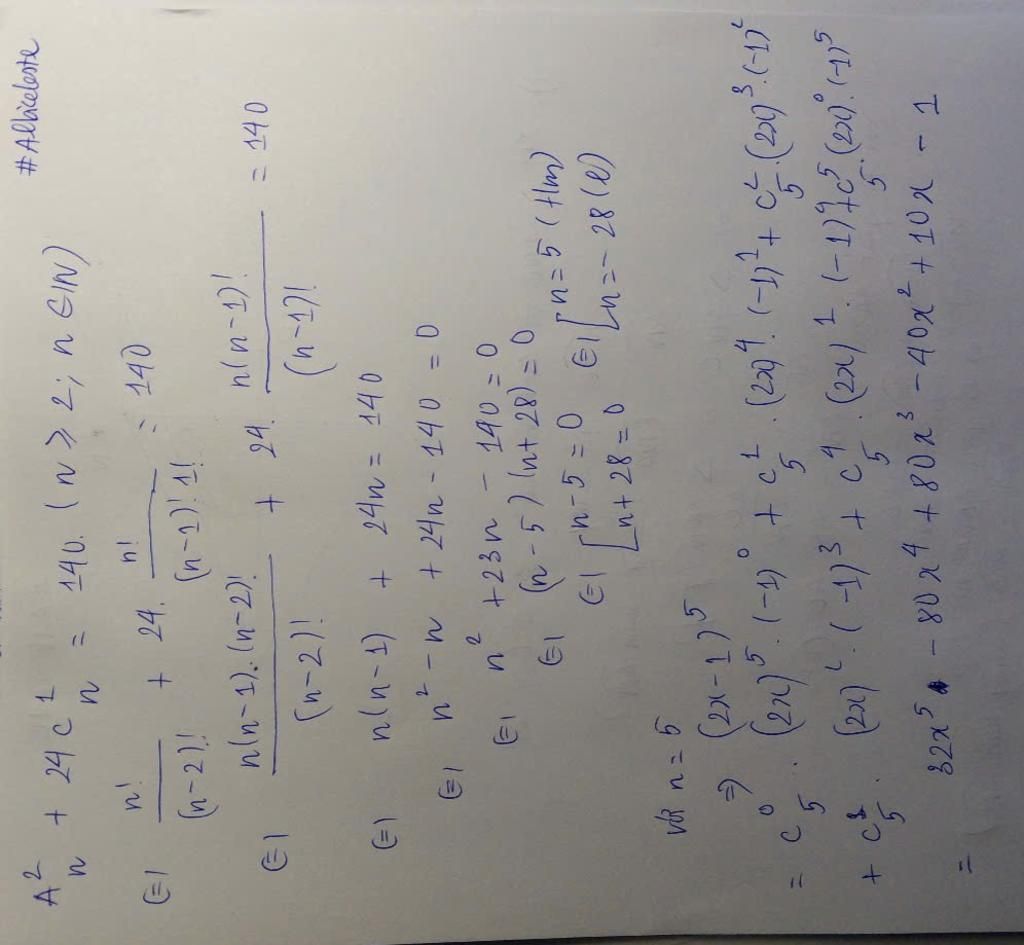 #Albiceleste
A²ₙ + 24C¹ₙ = 140. (n ≥ 2; n ∈ IN)
(=) n!/(n-2)! + 24. n!/(n-1)! 1! = 140
(=) n(n-1).(n-2)!/(n-2)! + 24. n(n-1)!/(n-1)! = 140
(=) n(n-1) + 24n = 140
(=) n² - n + 24n - 140 = 0
(=) n² + 23n - 140 = 0
(=) (n-5)(n+28) = 0
(=) [n-5 = 0 (=) [n = 5 (t/m)
[n+28 = 0 [n = -28 (l)
với n = 5
=) (2x-1)⁵
= C⁰₅ . (2x)⁵.(-1)⁰ + C¹₅ .(2x)⁴.(-1)¹ + C²₅.(2x)³.(-1)²
+ C³₅ . (2x)².(-1)³ + C⁴₅ .(2x)¹.(-1)⁴ + C⁵₅.(2x)⁰.(-1)⁵
= 32x⁵ - 80x⁴ + 80x³ - 40x² + 10x - 1